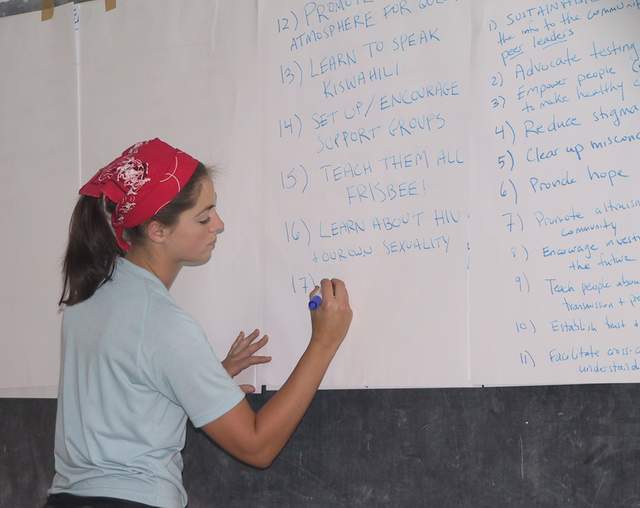 12) PROMOTE
ATMOSPHERE FOR
13) LEARN TO SPEAK
KISWAHILI
14) SET UP/ENCOURAGE
SUPPORT GROUPS
15) TEACH THEM ALL
FRISBEE!
16) LEARN ABOUT HIV
+ OUR OWN SEXUALITY
17)
1)
the info to the community
peer leaders
2) Advocate testing
3) Empower people
to make healthy
4) Reduce stigma
5) Clear up
6) Provide hope
7) Promote
community
8) Encourage
the future
9) Teach people about
transmission +
10) Establish trust +
11) Facilitate